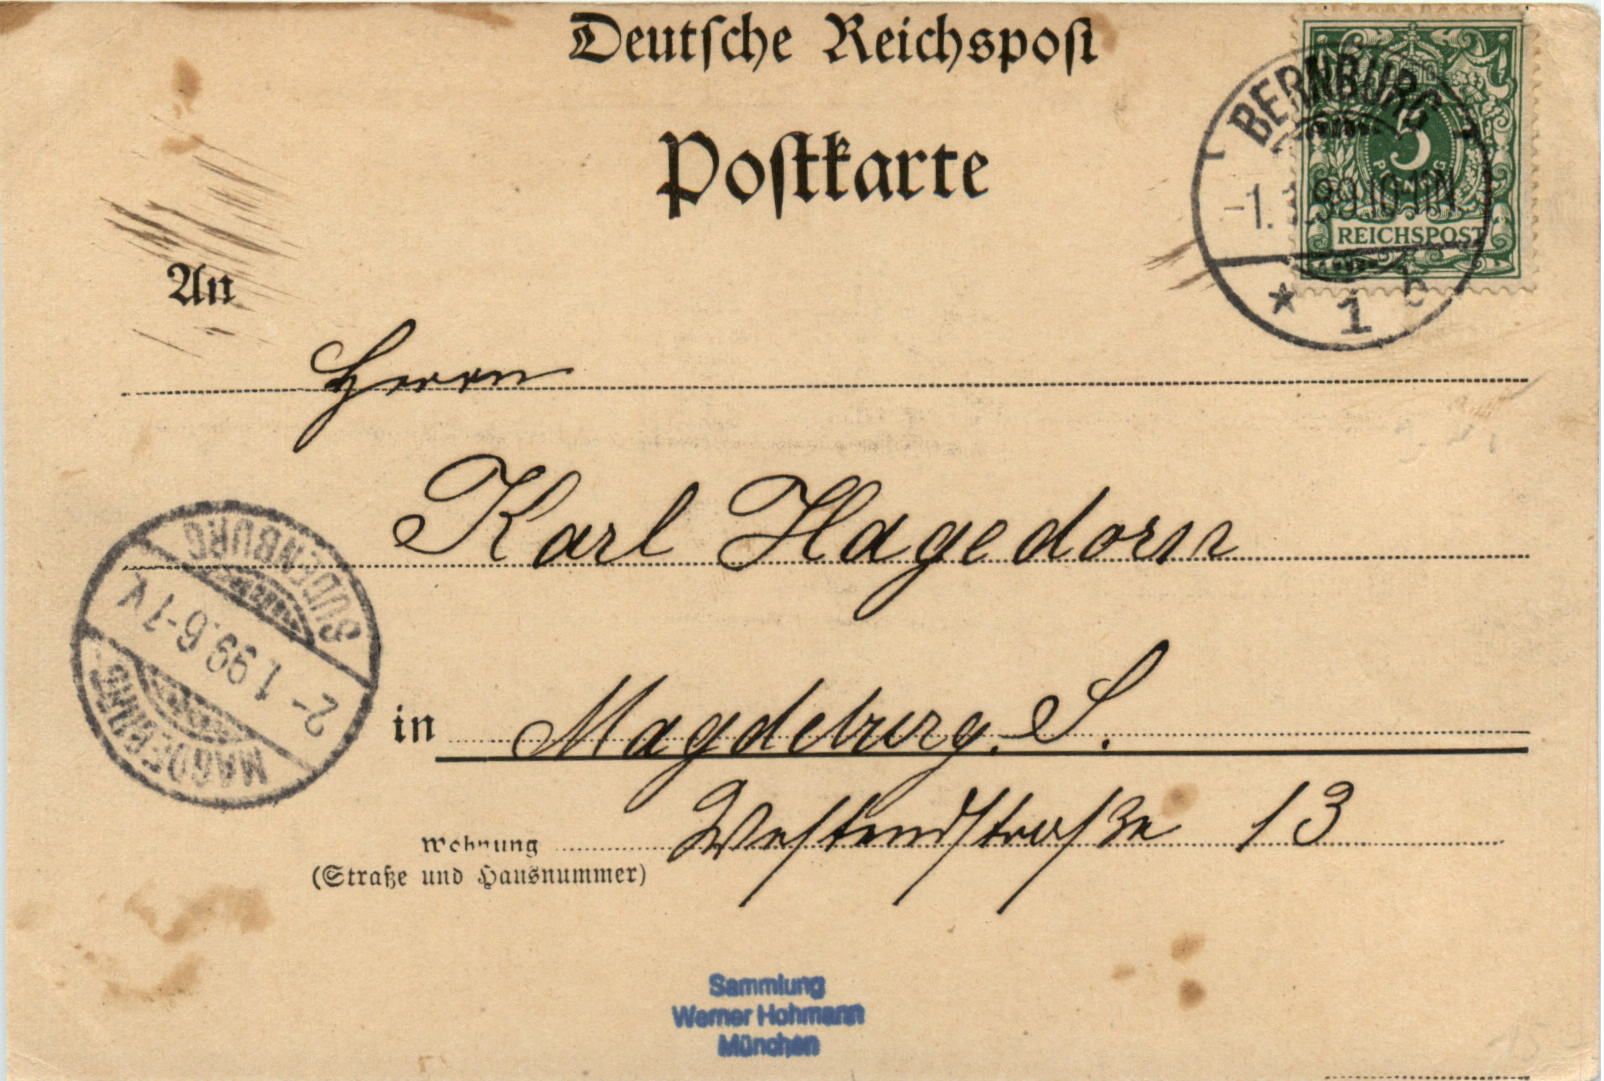 Deutsche Reichspost
Postkarte
BERNBURG
-1.1.99 10-11N.
* 1 b
5
PFENNIG
REICHSPOST
An
Herrn
Karl Hagedorn
in Magdeburg. S.
Westendstraße 13
Wohnung
(Straße und Hausnummer)
MAGDEBURG
2-1.99.6-7V
SUDENBURG
Sammlung
Werner Hohmann
München